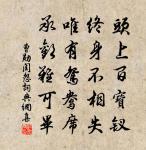 頭上百寶釵
終身不相失
唯有鴛鴦席
承歡難可畢
曹勛閨怨詞典網集